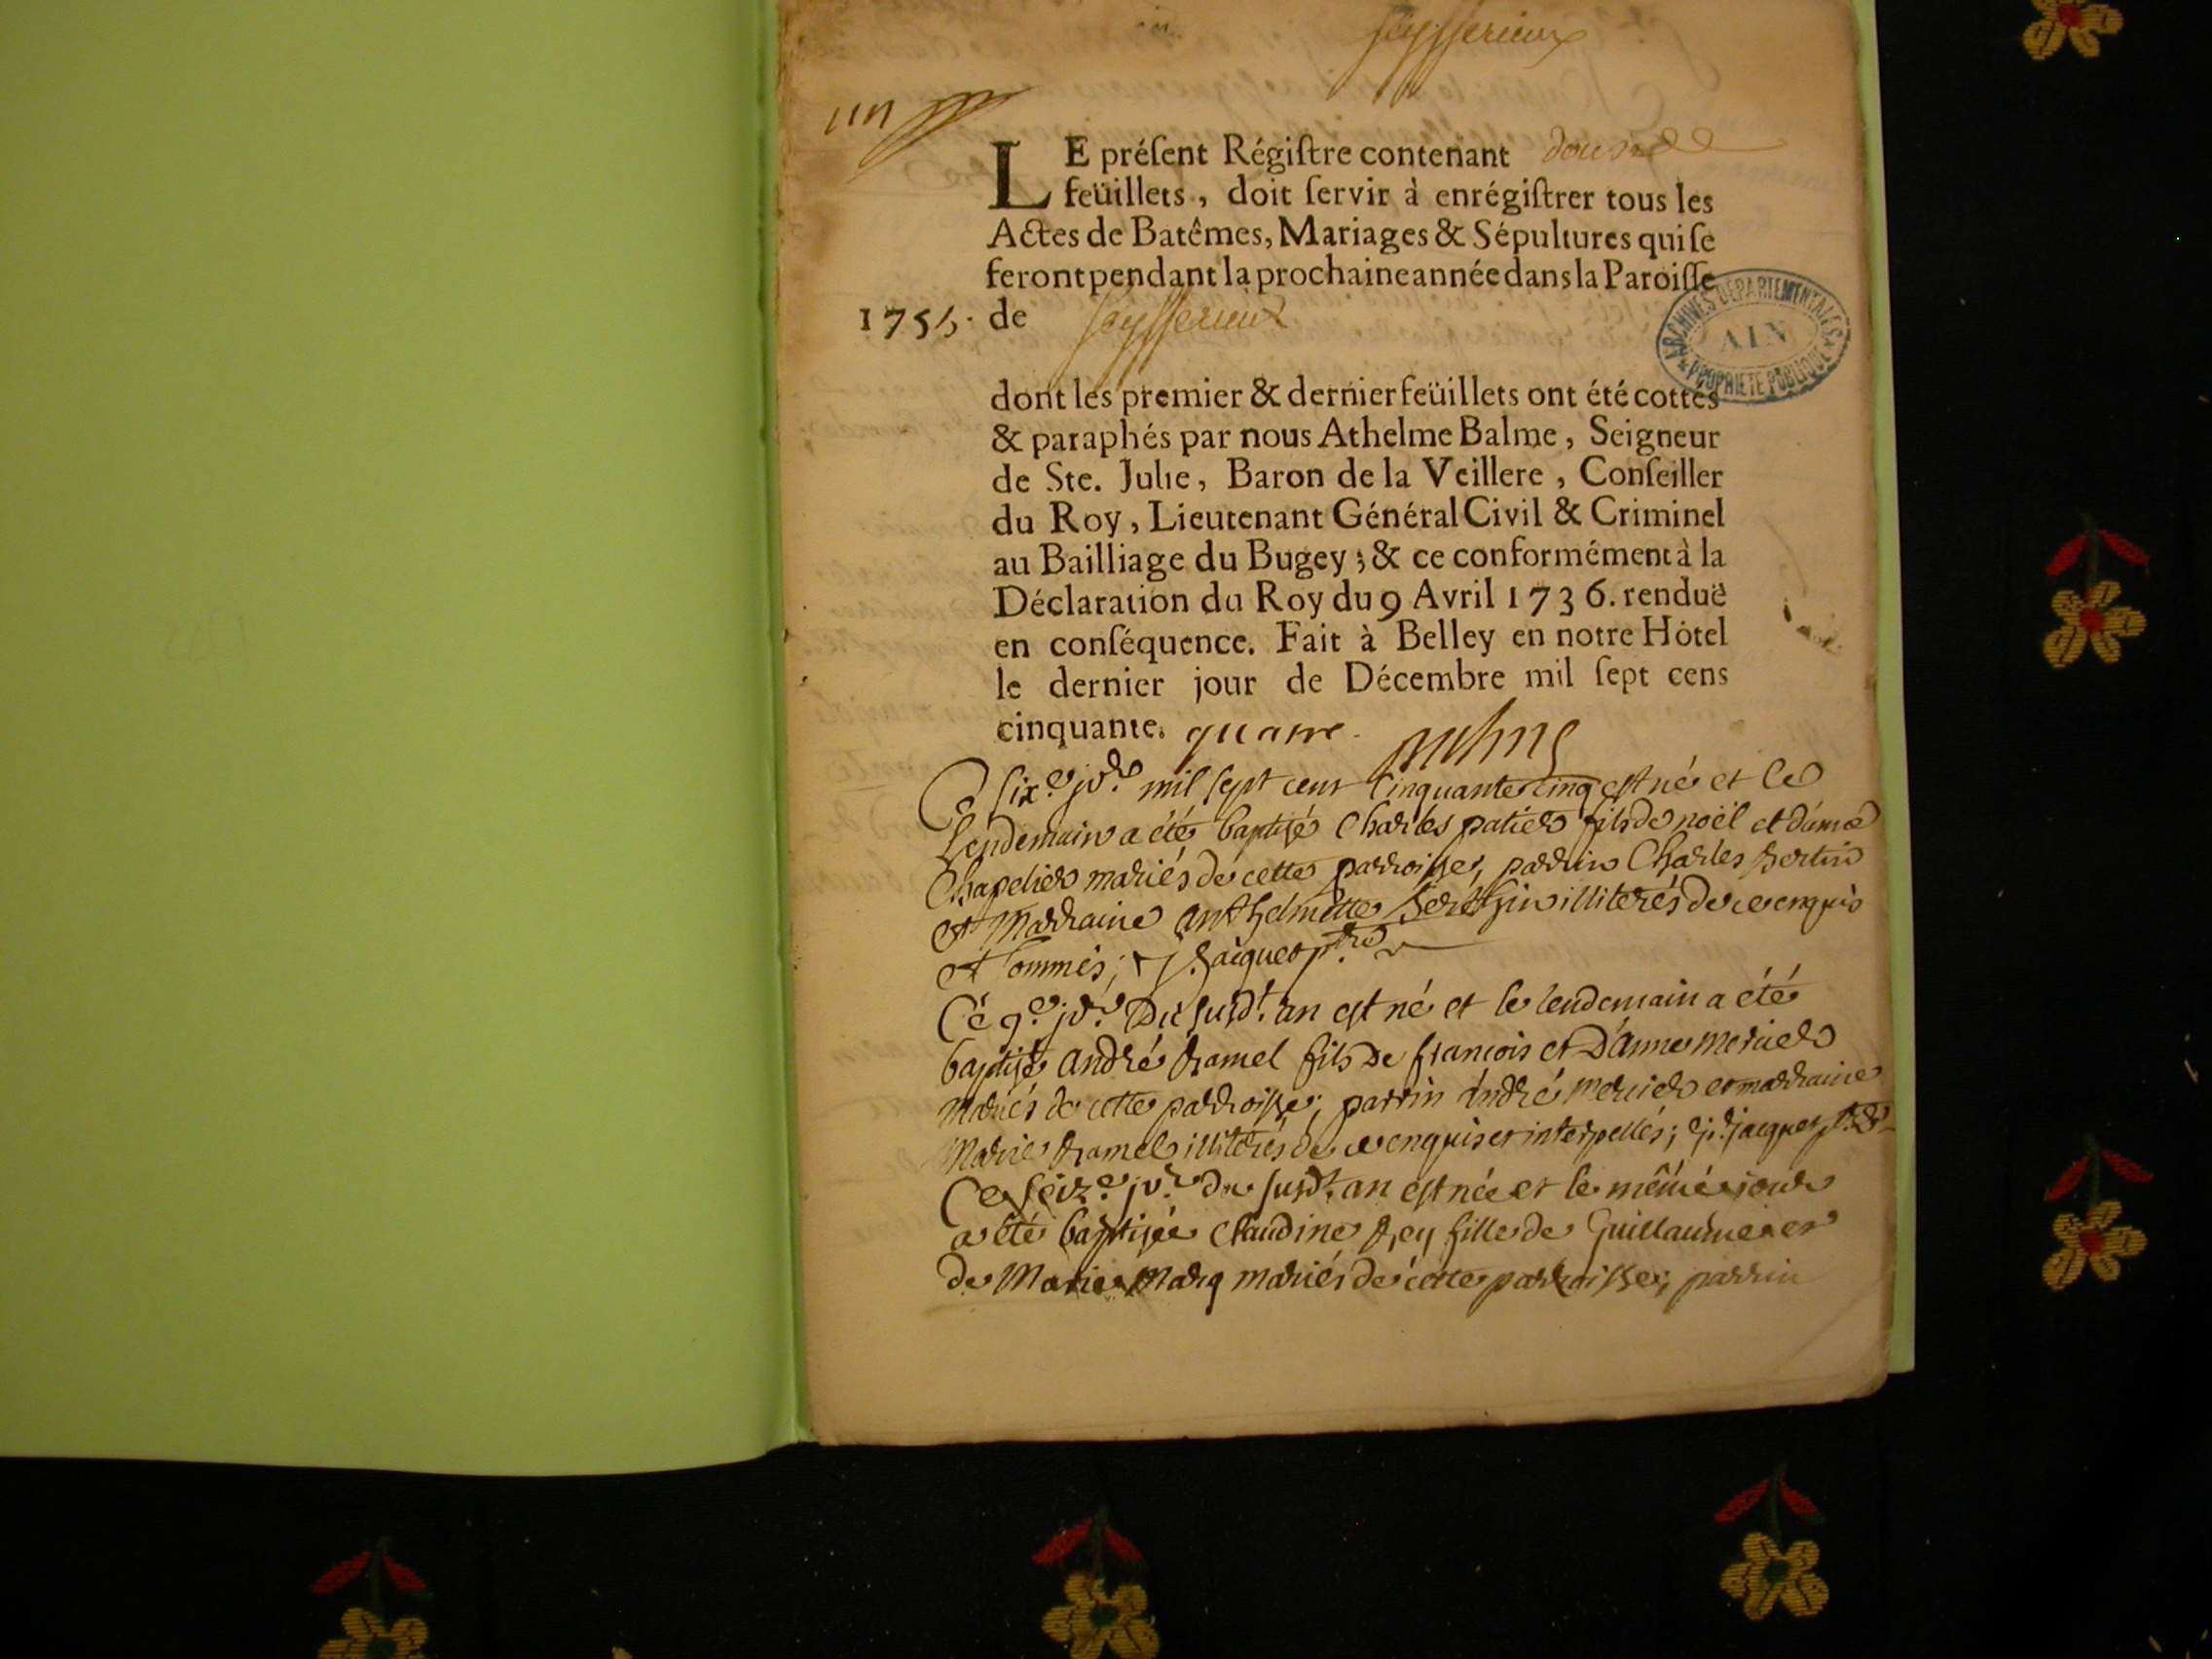 Seysserieux
un
LE préſent Régiſtre contenant douze
feüillets, doit ſervir à enrégiſtrer tous les
Actes de Batêmes, Mariages & Sépultures qui ſe
feront pendant la prochaine année dans la Paroiſſe
1755. de Seysserieux
ARCHIVES DÉPARTEMENTALES
AIN
PROPRIÉTÉ PUBLIQUE
dont les premier & dernier feüillets ont été cottés
& paraphés par nous Athelme Balme, Seigneur
de Ste. Julie, Baron de la Veillere, Conſeiller
du Roy, Lieutenant Général Civil & Criminel
au Bailliage du Bugey; & ce conformément à la
Déclaration du Roy du 9 Avril 1736. renduë
en conſéquence. Fait à Belley en notre Hôtel
le dernier jour de Décembre mil ſept cens
cinquante. quatre.
Ce six.e jv.r mil sept cent cinquante cinq est né et le
lendemain a été baptisé Charles patier fils de noël et d'anne
Chapelier mariés de cette parroisse, parrin Charles bertin
et Marraine anthelmette illiterés de ce enquis
et sommés;
Ce 9.e jv.r Du susd.t an est né et le lendemain a été
baptisé andré ramel fils de francois et D'anne mercier
mariés de cette parroisse; parrin André mercier et marraine
Marie ramel illiterés de ce enquis et interpellés; j. jacquet p.tre
Ce seiz.e jv.r du susd.t an est née et le même jour
a été baptisée Claudine Rey fille de Guillaume et
de Marie Marq mariés de cette parroisse; parrin